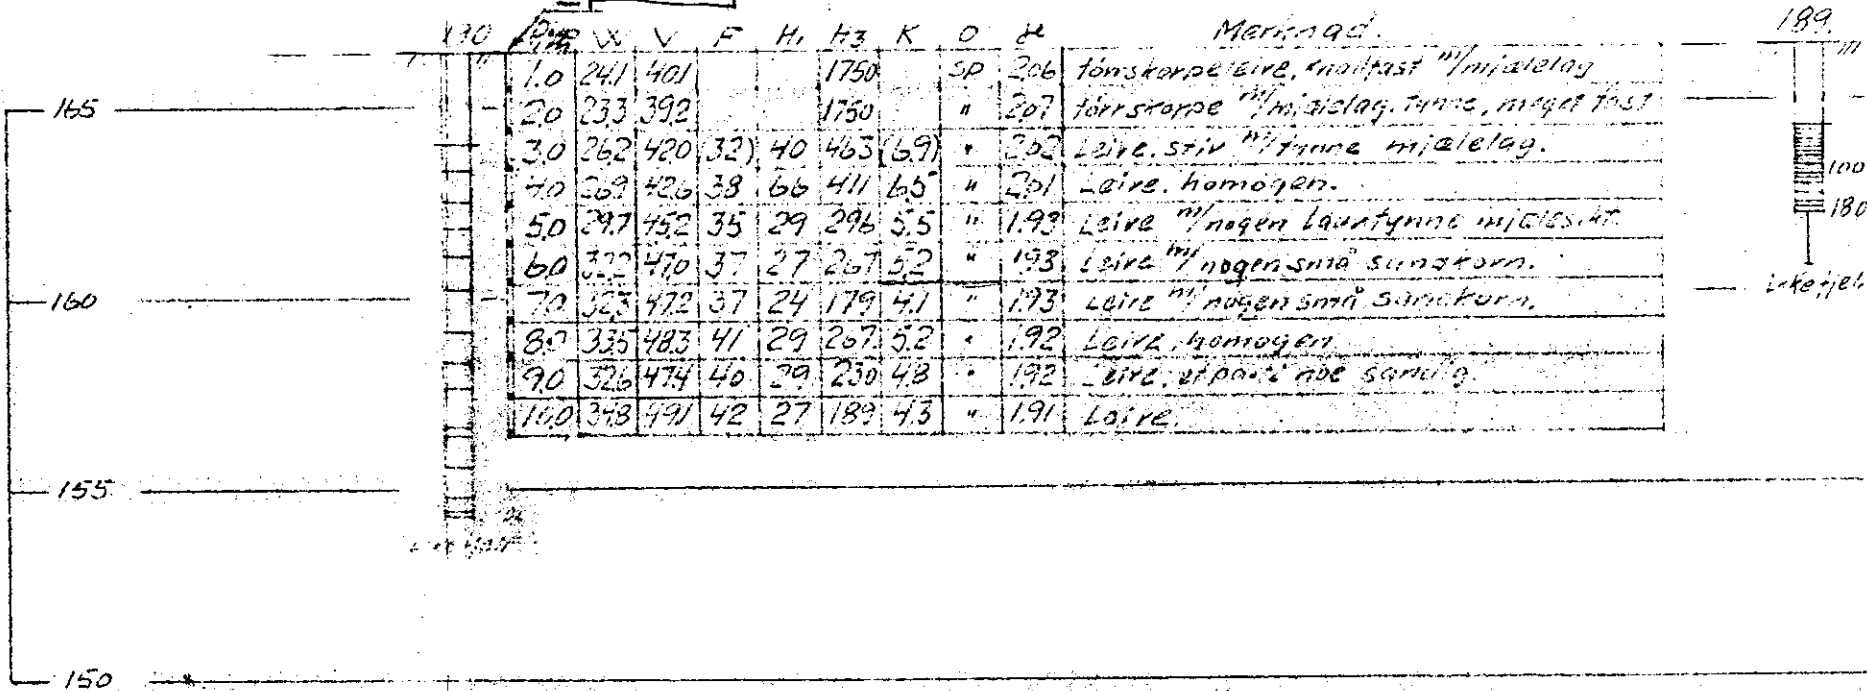 190 Dyp m W V F H1 H3 K O γ Merknad. 189.
1.0 24.1 40.1 1750 SP 2.06 tørrskorpeleire, knallfast m/mjælelag
165
2.0 23.3 39.2 1750 " 2.07 tørrskorpe m/mjælelag. tynne, meget fast
3.0 26.2 42.0 (32) 40 463 (6.9) " 2.02 Leire, stiv m/tynne mjælelag.
4.0 26.9 42.6 38 66 411 6.5 " 2.01 Leire, homogen.
100
5.0 29.7 45.2 35 29 296 5.5 " 1.93 Leire m/nogen tynne
180
6.0 32.2 47.0 37 27 267 5.2 " 1.93 Leire m/nogen små sandkorn.
160
7.0 32.3 47.2 37 24 179 4.1 " 1.93 Leire m/nogen små sandkorn.
Ikke fjell
8.0 33.5 48.3 41 29 267 5.2 " 1.92 Leire, homogen
9.0 32.6 47.4 40 29 230 4.8 " 1.92 Leire, et parti noe sandig.
10.0 34.8 49.1 42 27 189 4.3 " 1.91 Leire.
155
150